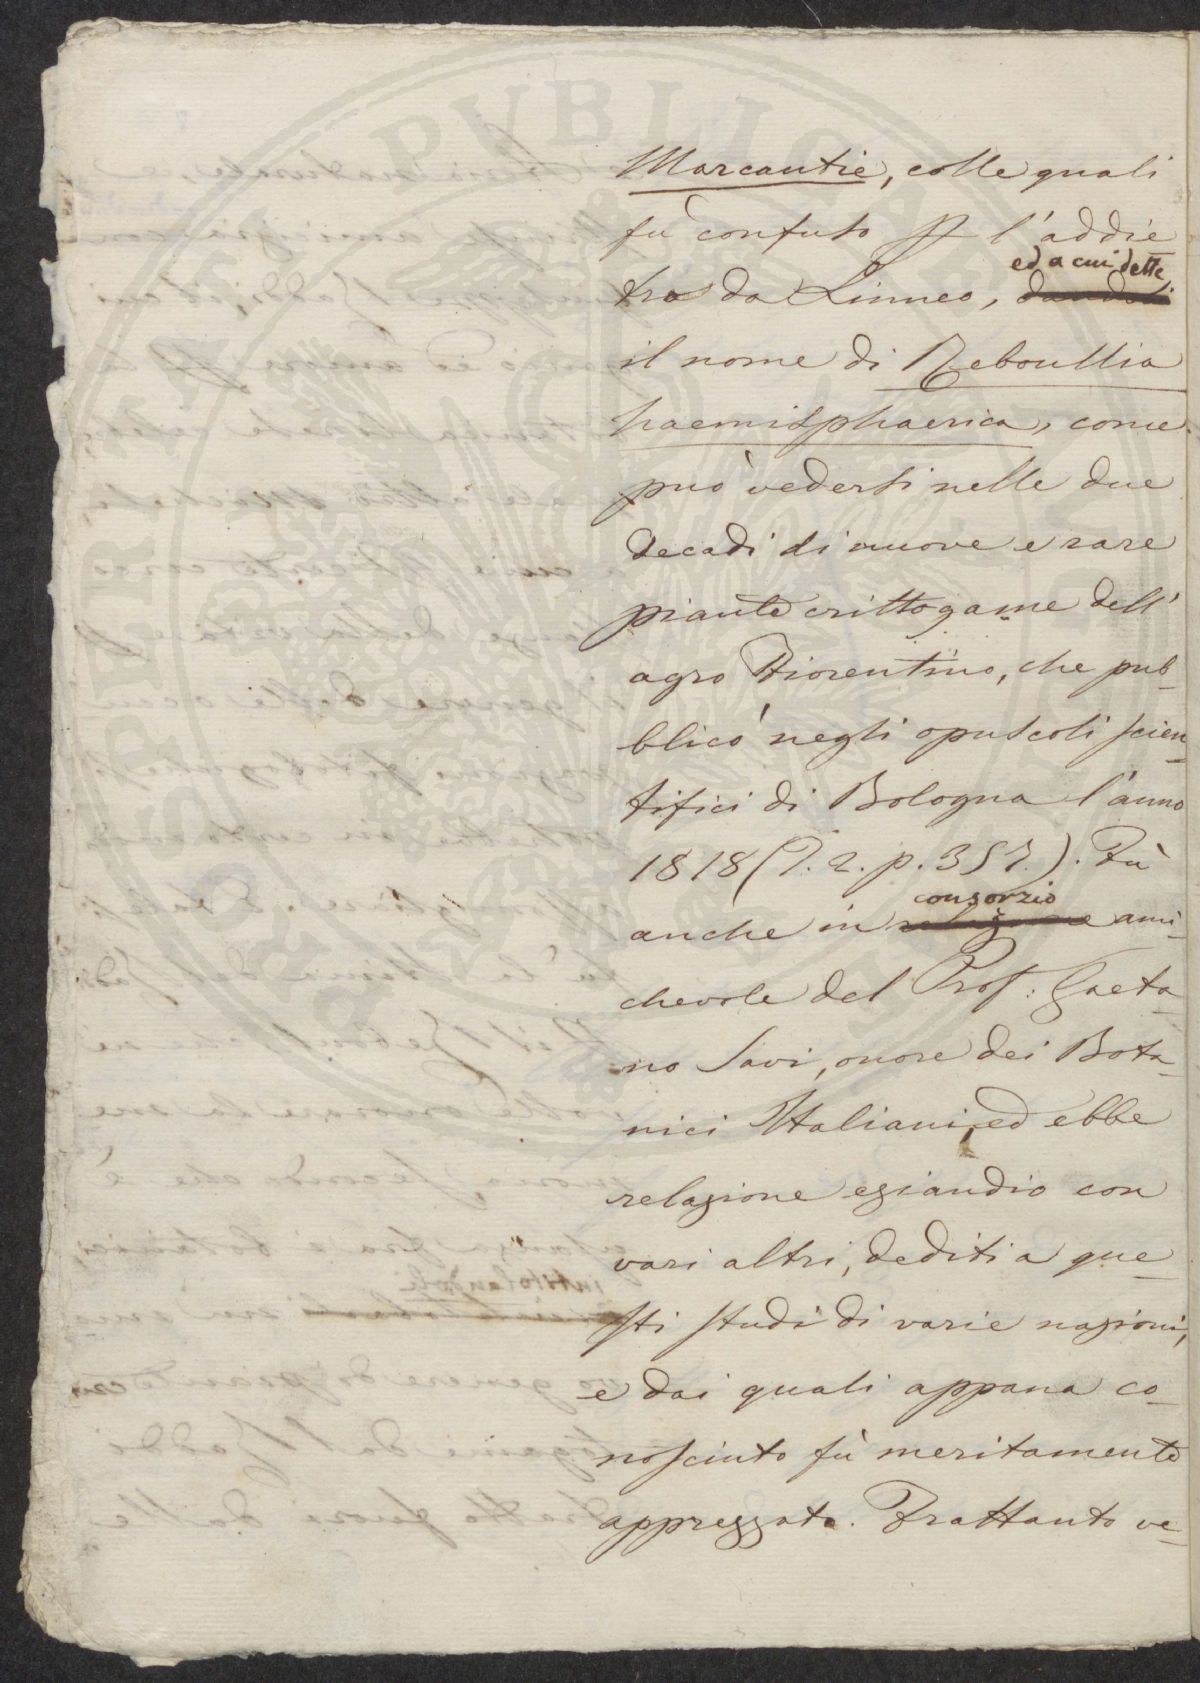 Marcantie, colle quali
fù confuso l'addie
tro da Linneo, ed a cui dette
il nome di Reboullia
haemisphaerica, come
può vedersi nelle due
Decadi di nuove e rare
piante crittogame dell'
agro Fiorentino, che pub-
blicò negli opuscoli scien-
tifici di Bologna l'anno
1818 (T. 2. p. 357.). Fù
anche in consorzio ami-
chevole del Prof: Gaeta-
no Savi, onore dei Bota-
nici Italiani, ed ebbe
relazione eziandio con
vari altri, dediti a que-
sti studi di varie nazioni,
e dai quali appana co-
nosciuto fù meritamente
apprezzato. Frattanto ve-